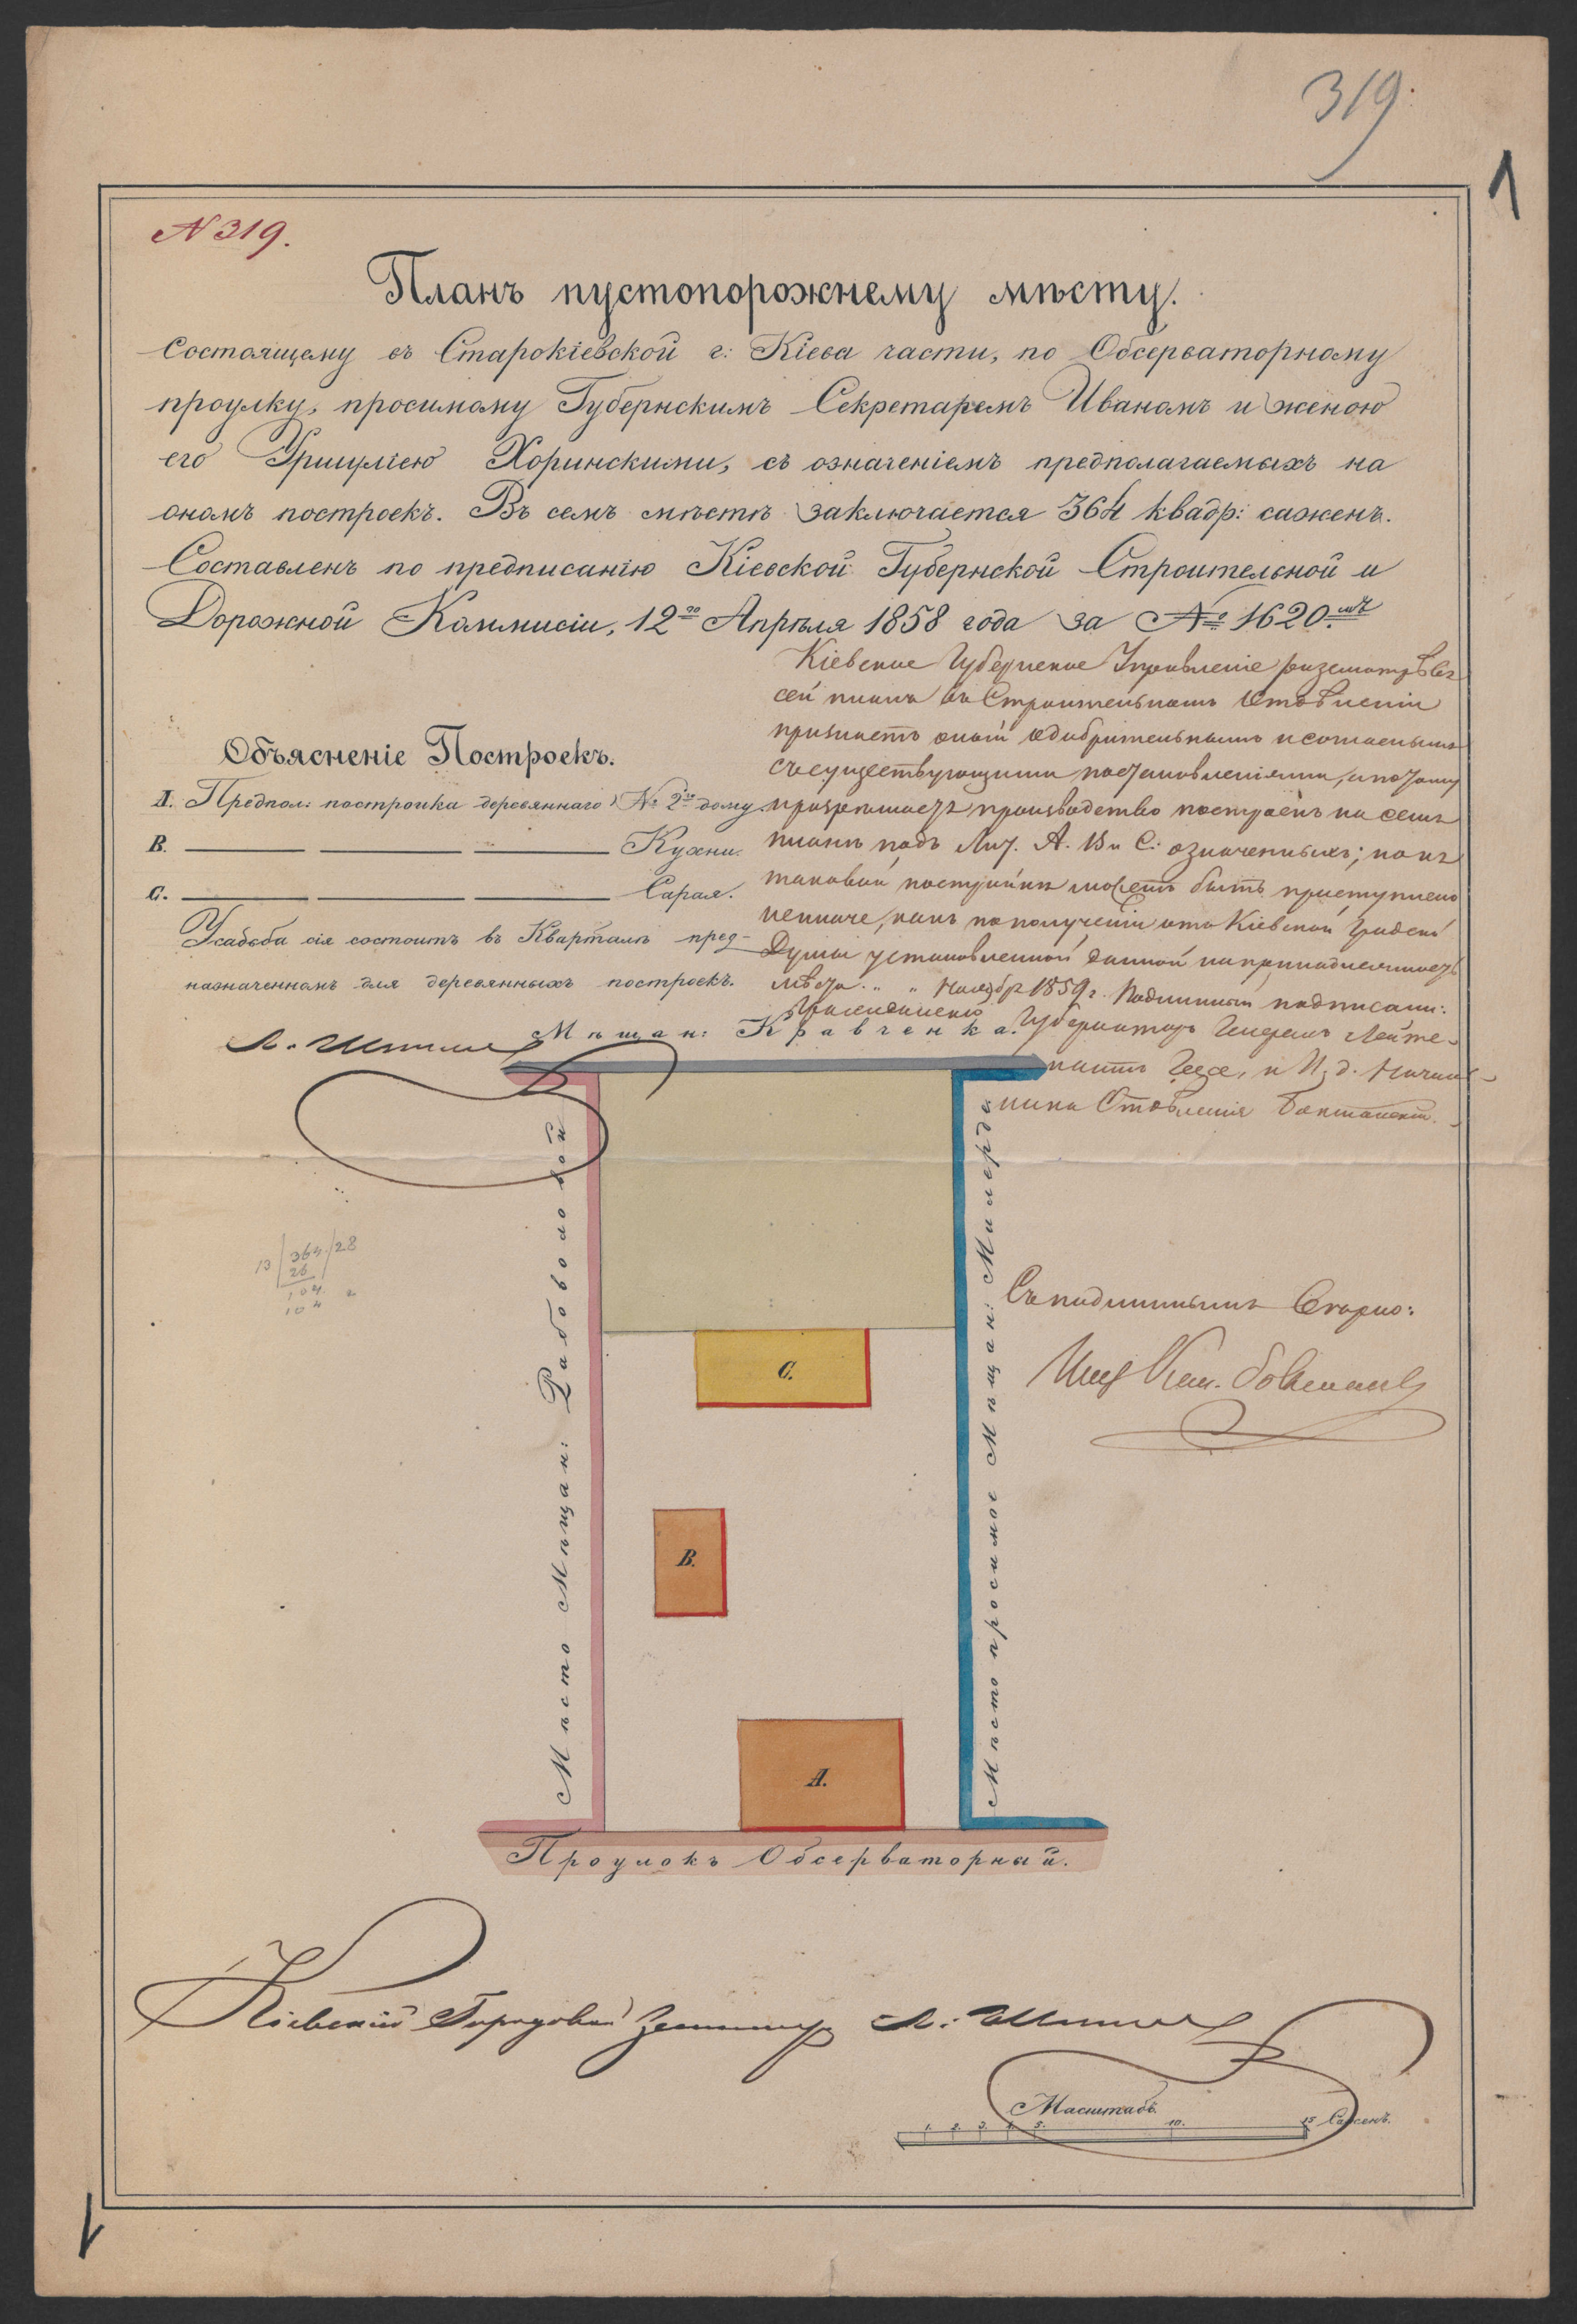 319.
1
N 319.
Планъ пустопорожнему мѣсту.
Состоящему въ Старокіевской г: Кіева части, по Обсерваторному
проулку, просимому Губернскимъ Секретаремъ Иваномъ и женою
его Уршулiею Хоринскими, съ означеніемъ предполагаемыхъ на
ономъ построекъ. Въ семъ мѣстѣ заключается 364 квадр: сажень.
Составленъ по предписанію Кіевской Губернской Строительной и
Дорожной Коммисіи, 12го Апрѣля 1858 года за № 1620.мъ
Кіевское Губернское Управленіе разсмотрѣвъ
сей планъ въ Строительномъ Отдѣленіи
признаетъ оный одобрительнымъ и согласнымъ
съ существующими постановленіями, а потому
разрешаетъ производство построекъ на семъ
планѣ подъ Лит. А. В и С. означенныхъ; но къ
таковой постройкѣ можетъ быть приступлено
неиначе, какъ по полученіи отъ Кіевской Градской
Думы установленной данной на принадлежность
мѣста. " " Ноября 1859 г. Подлинный подписали:
Гражданскій Губернаторъ Генералъ Лейте-
нантъ Гессе, и И. д. Началь-
ника Отдѣленія
Объясненіе Построекъ.
А. Предпол: постройка деревяннаго № 2го дому.
В. Кухни.
С. Сарая.
Усадьба сія состоитъ въ Кварталѣ пред-
назначенномъ для деревянныхъ построекъ.
Мѣщан: Кравченка.
Мѣсто Мѣщан: Работоловой
Мѣсто просимое Мѣщан: Милерда
13 364 28
26
104
104
Съ подлиннымъ вѣрно:
С.
В.
А.
Проулокъ Обсерваторный.
Кіевскій Городовой Землемеръ
Масштабъ
1. 2. 3. 4. 5. 10. 15 Сажень.